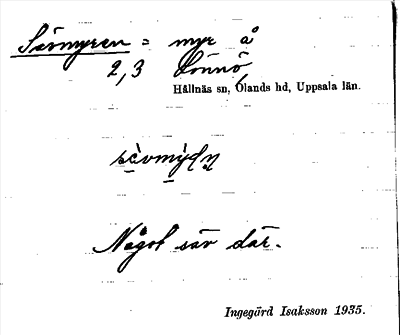 Sävmyren = myr å
2,3 Lönnö,
Hållnäs sn, Ölands hd, Uppsala län.
Något säv där.
Ingegärd Isaksson 1935.